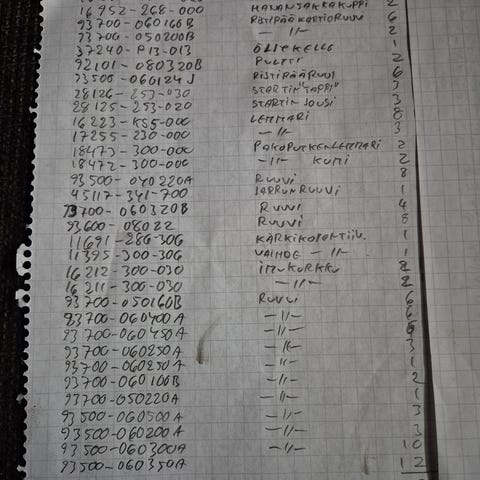 16952-268-000 HANANSAKKAKUPPI 2
93700-060160B RISTIPÄÄKARTIORUUVI 6
93700-050200B -//- 2
37240-P13-013 ÖLJYKELLO 1
92101-080320B PULTTI 2
93500-060124J RISTIPÄÄRUUVI 6
28126-253-030 STARTIN "TAPPI" 3
28125-253-020 STARTIN JOUSI 3
16223-KS5-000 LEMMARI 8
17255-230-000 -//- 3
18473-300-000 PAKOPUTKENLEMMARI 2
18472-300-000 -//- KUMI 2
93500-040220A RUUVI 8
45117-341-700 JARRUNRUUVI 1
93700-060320B RUUVI 4
93600-08022 RUUVI 8
11691-286-306 KÄRKIKOPANTIIV. 1
11395-300-306 VAIHDE -//- 1
16212-300-030 IMUKURKKU 2
16211-300-030 -//- 2
93700-050160B RUUVI 6
93700-060400A -//- 6
93700-060450A -//-
93700-060250A -//- 3
93700-060250A -//- 1
93700-060100B -//- 2
93700-050220A -//- 1
93500-060500A -//- 3
93500-060200A -//- 3
93500-060300A -//- 10
93500-060350A 12